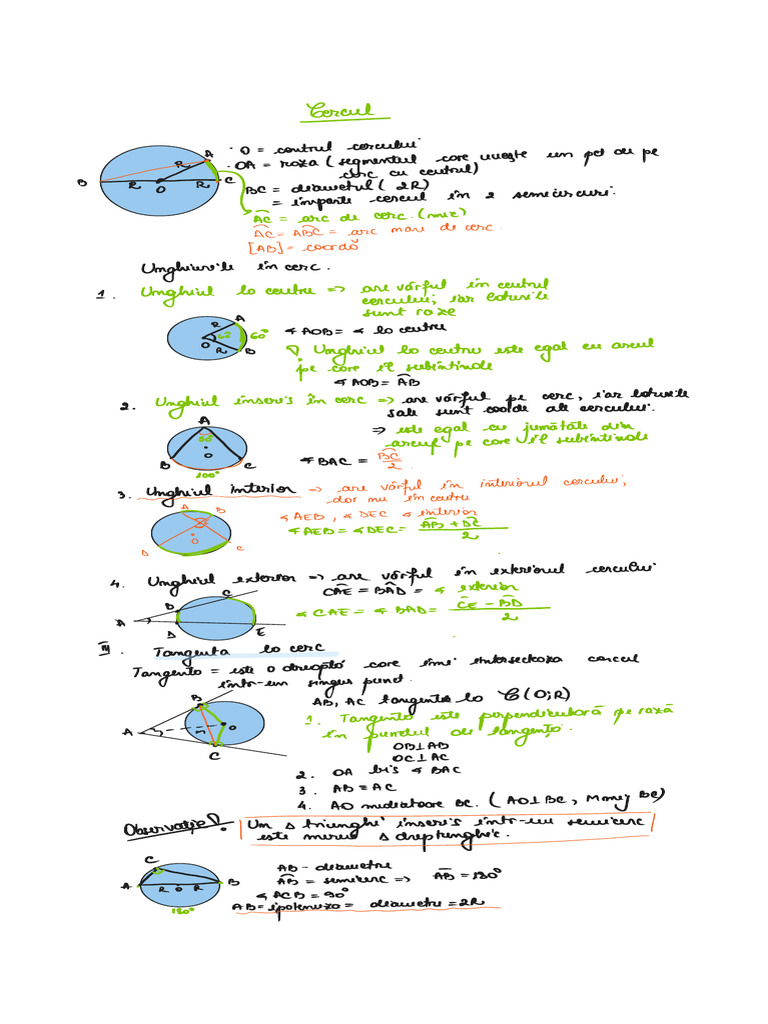 Cercul
A
· O = centrul cercului
R
· OA = raza (segmentul care unește un pct de pe
cerc cu centrul)
B R O R C
BC = diametrul (2R)
= împarte cercul în 2 semicercuri.
AC = arc de cerc. (mic)
AC = ABC = arc mare de cerc
[AB] = coardă
Unghiurile în cerc.
1. Unghiul la centru => are vârful în centrul
cercului; iar laturile
sunt raze
A
R
O 60° 60°
R B
∢AOB = ∢ la centru
! Unghiul la centru este egal cu arcul
pe care îl subîntinde
∢AOB = AB
2. Unghiul înscris în cerc => are vârful pe cerc, iar laturile
sale sunt coarde ale cercului.
A
50°
O
B C
100°
=> este egal cu jumătate din
arcul pe care îl subîntinde
∢BAC = BC/2
3. Unghiul interior => are vârful în interiorul cercului,
dar nu în centru
A B
E
O
D C
∢AEB, ∢DEC ∢ interior
∢AEB = ∢DEC = AB + DC / 2
4. Unghiul exterior => are vârful în exteriorul cercului
C
B
A
D E
CAE = BAD = ∢ exterior
∢CAE = ∢BAD = CE - BD / 2
IV. Tangenta la cerc
Tangenta = este o dreaptă care îmi intersectează cercul
într-un singur punct.
AB, AC tangente la C(O;R)
B
A O
C
1. Tangenta este perpendiculară pe rază
în punctul de tangență.
OB⊥AB
OC⊥AC
2. OA bis ∢BAC
3. AB = AC
4. AO mediatoare BC. (AO⊥BC, M mij BC)
Observație! Un Δ triunghi înscris într-un semicerc
este mereu Δ dreptunghic.
C
A R O R B
180°
AB - diametru
AB = semicerc => AB = 180°
∢ACB = 90°
AB = ipotenuza = diametru = 2R